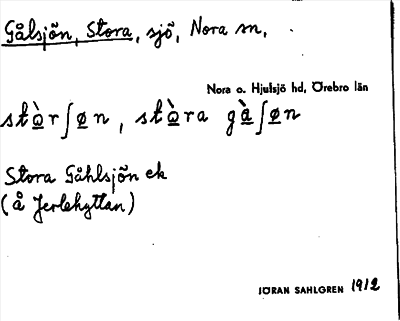 Gålsjön, Stora, sjö, Nora sn,
Nora o. Hjulsjö hd, Örebro län
stò̲rʃø̲n, stò̲ra gà̲ʃø̲n
Stora Gåhlsjön ek
(å Jerlehyttan)
JÖRAN SAHLGREN 1912